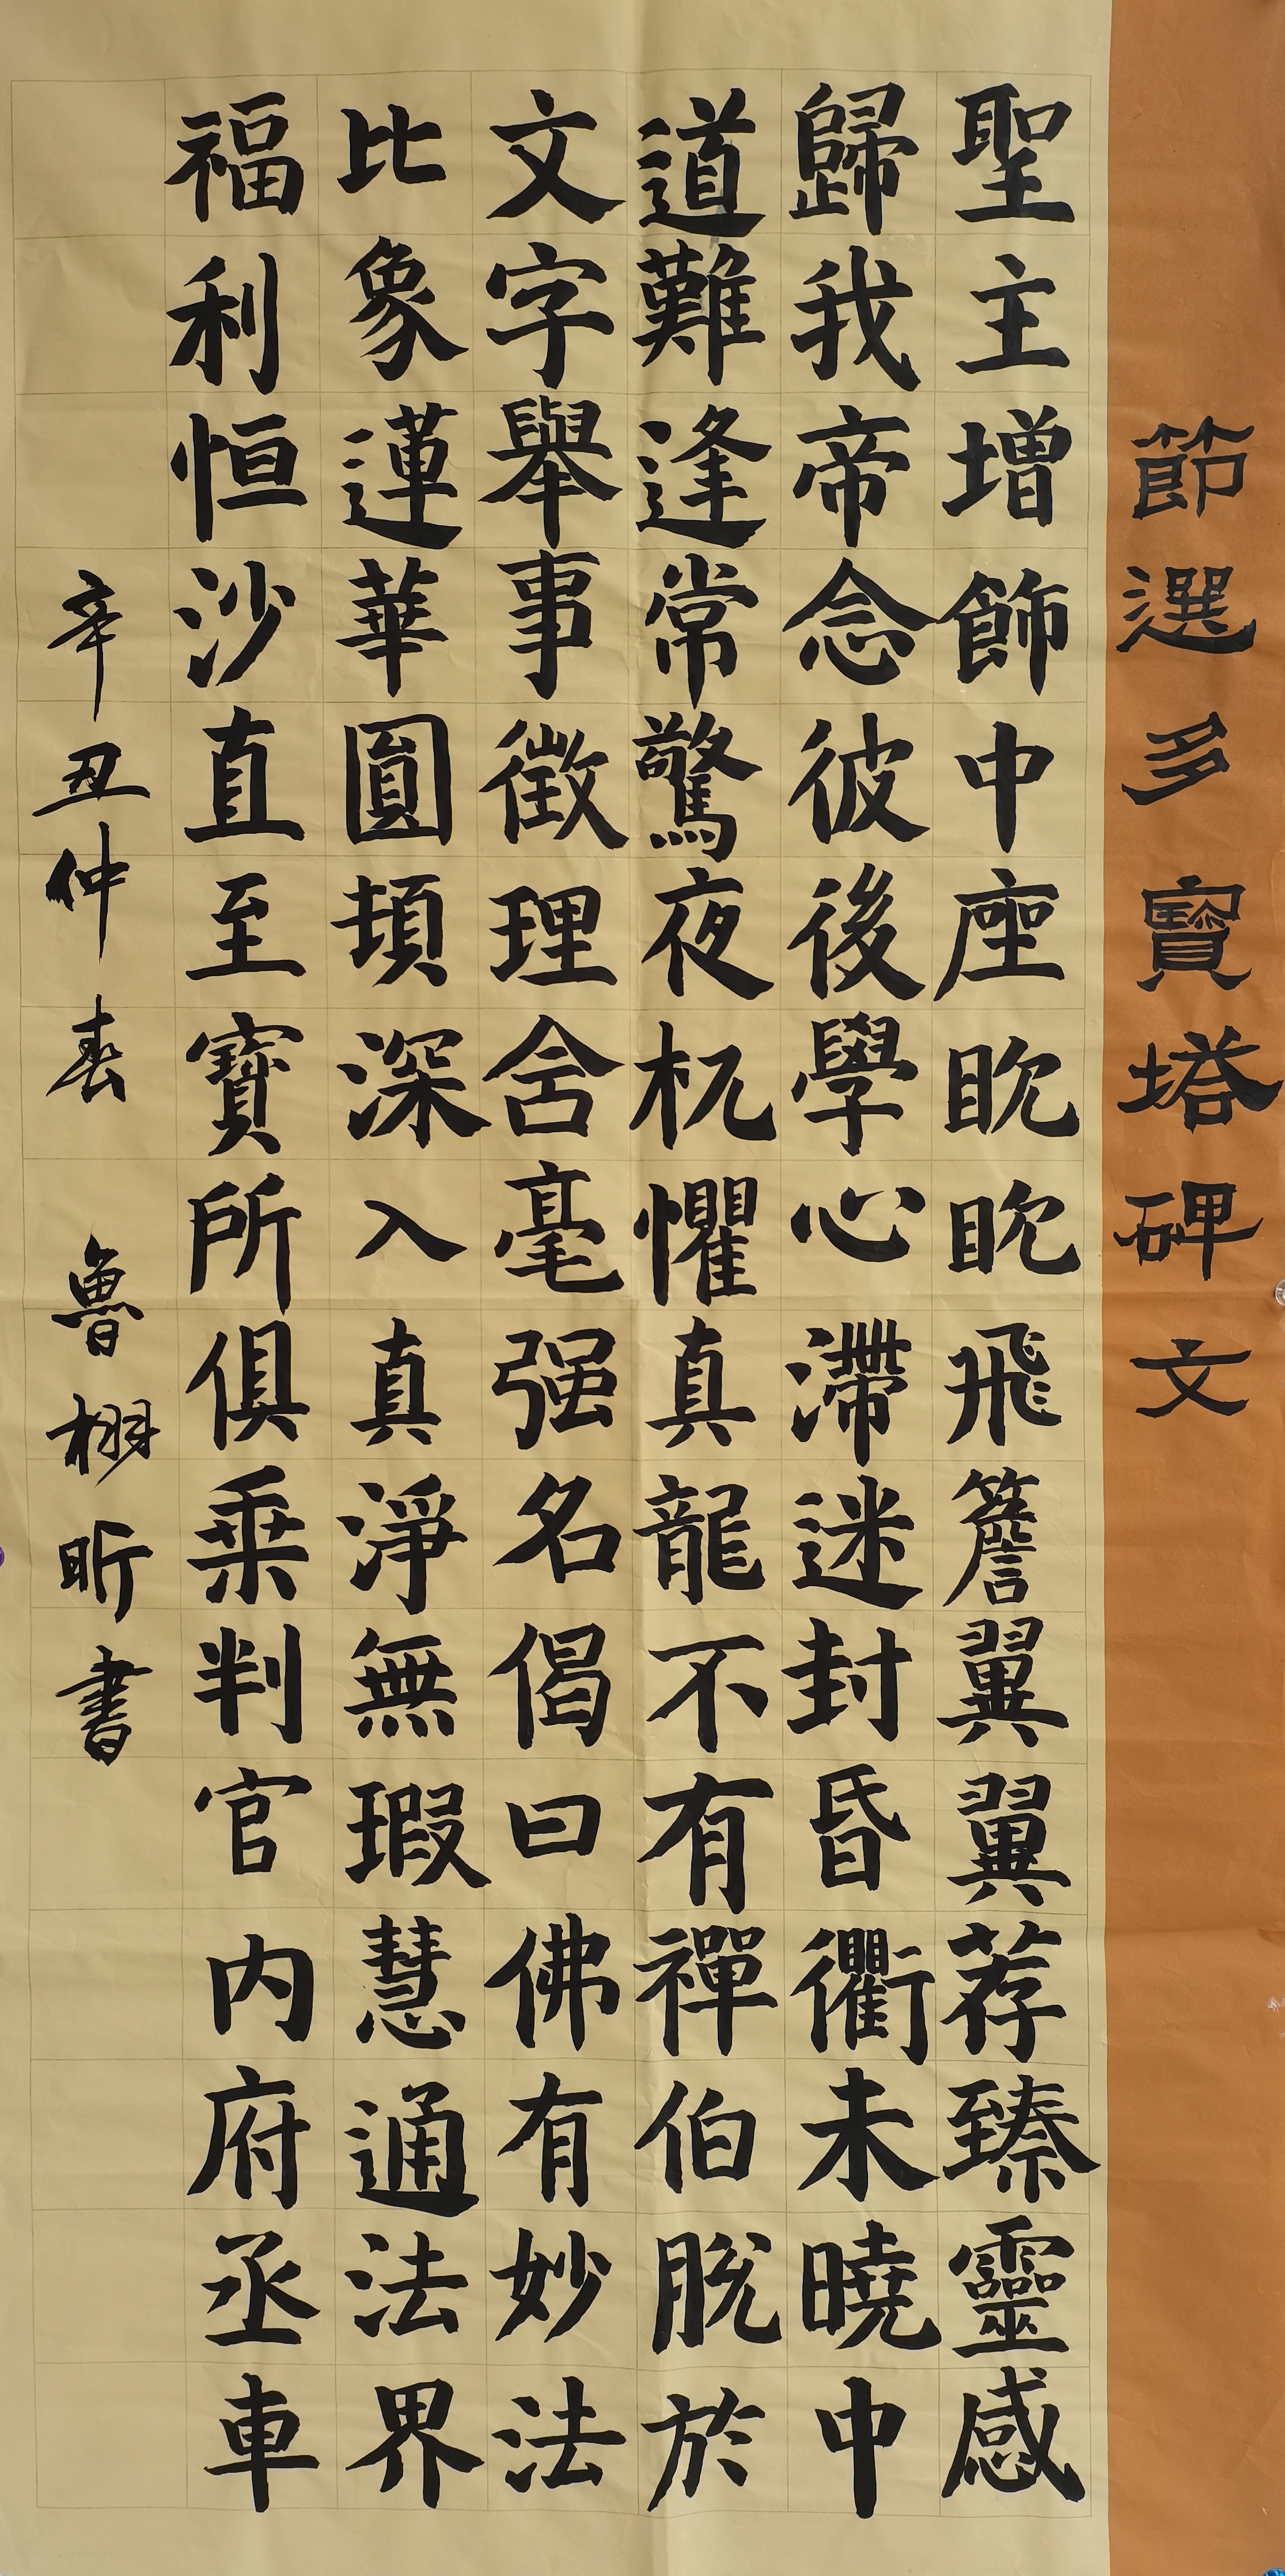 節選多寶塔碑文
聖主增飾中座眈眈飛簷翼翼荐臻靈感
歸我帝念彼後學心滯迷封昏衢未曉中
道難逢常驚夜杌懼真龍不有禪伯脫於
文字舉事徵理含毫强名偈曰佛有妙法
比象蓮華圓頓深入真淨無瑕慧通法界
福利恒沙直至寶所俱乘判官內府丞車
辛丑仲春 魯栩昕書